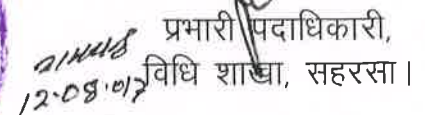 प्रभारी पदाधिकारी,
विधि शाखा, सहरसा।
12.08.017